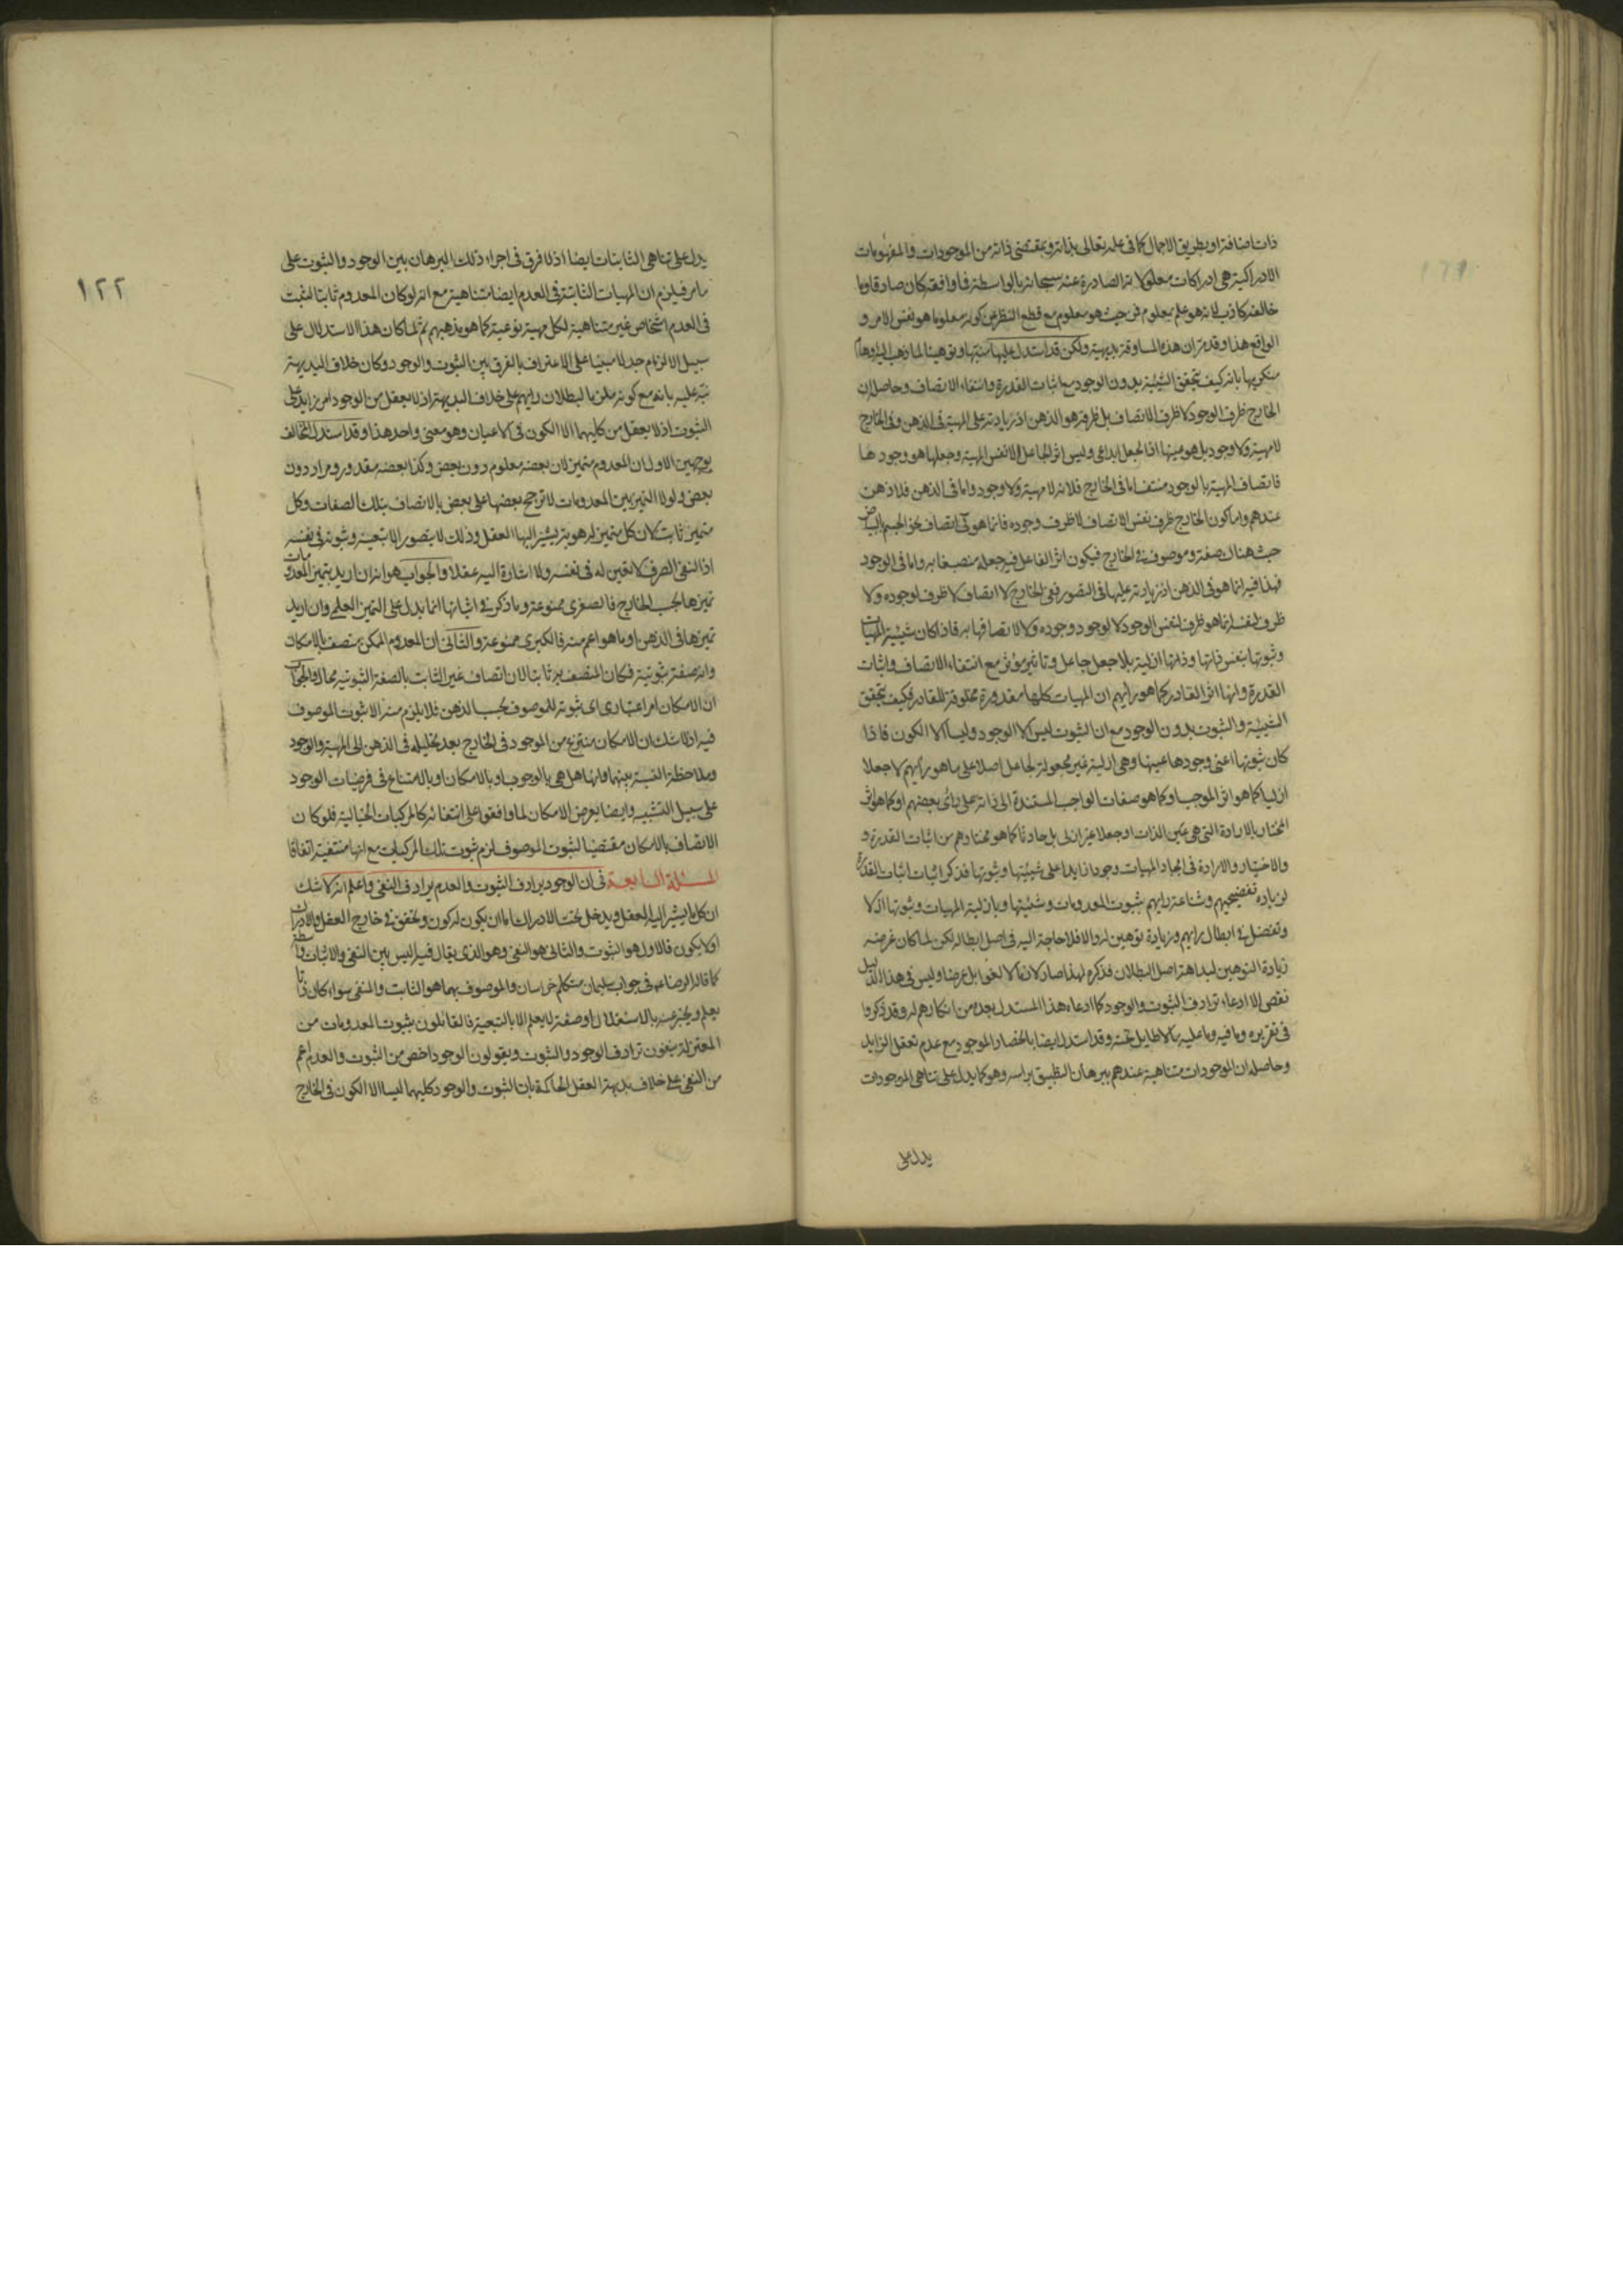 ذات اضافة او بطريق الاجمال كما في علمه تعالى بذاته وبمقتضى ذاته من الموجودات والمفهومات
الادراكية هي ادراكات معلولاته الصادرة عنه سبحانه بالواسطة فما وافقه كان صادقا وما
خالفه كاذب لانه هو علم بمعلوم من حيث هو معلوم مع قطع النظر عن كونه معلوما هو نفس الامر و
الواقع هذا وقد مر ان هذه المساوقة بديهية ولكن قد استدل عليها تنبيها وتوهينا لما ذهب اليه اوهام
منكريها بانه كيف يتحقق الشيئية بدون الوجود مع اثبات القدرة وانتفاء الاتصاف وحاصله ان
الخارج ظرف الوجود لا ظرف الاتصاف بل ظرفه هو الذهن اذ زيادته على المهية في الذهن وفي الخارج
لا مهية ولا وجود بل هو عينها اذ الجعل ابداعي وليس اثر الجاعل الا نفس المهية وجعلها هو وجودها
فاتصاف المهية بالوجود منتف اما في الخارج فلانه لا مهية ولا وجود واما في الذهن فلا ذهن
عندهم واما كون الخارج ظرف نفس الاتصاف لا ظرف وجوده فانما هو في اتصاف نحو الجسم بالبياض
حيث هناك صفة وموصوف في الخارج فيكون اثر الفاعل فيه جعله منصبغا به واما في الوجود
فهذا فيه انما هو في الذهن اذ زيادته عليها في التصور ففي الخارج لا اتصاف لا ظرف لوجوده ولا
ظرف لنفسه انما هو ظرف لنفس الوجود لا لوجود وجوده ولا لاتصافها به فاذا كان شيئية المهيات
وثبوتها بنفس ذاتها وذاتها ازلية بلا جعل جاعل وتاثير مؤثر مع انتفاء الاتصاف واثبات
القدرة وانها اثر القادر كما هو رأيهم ان المهيات كلها مقدورة مخلوقة للقادر فكيف يتحقق
الشيئية والثبوت بدون الوجود مع ان الثبوت ليس الا الوجود وليسا الا الكون فاذا
كان ثبوتها اعني وجودها عينها وهي ازلية غير مجعولة لجاعل اصلا على ما هو رأيهم لا جعلا
ازليا كما هو اثر الموجب او كما هو صفات الواجب المستندة الى ذاته على رأي بعضهم او كما هو اثر
المختار بالارادة التي هي عين الذات او جعلا غير ازلي بل حادثا كما هو مختارهم من اثبات القدرة و
والاختيار والارادة في ايجاد المهيات وجودا زايدا على شيئيتها وثبوتها فذكر اثبات اثبات القدرة
لزيادة تفضيحهم وشناعة رأيهم بثبوت المعدومات وشيئيتها وبازلية المهيات وثبوتها اذ لا
وتفضل في ابطال رأيهم وزيادة توهين له والا فلا حاجة اليه في اصل ابطاله لكن لما كان غرضه
زيادة التوهين لبداهة اصل البطلان فذكره لهذا صار لازما لا لغوا بل عرضا وليس في هذا الدليل
نقص الا ادعاء ترادف الثبوت والوجود كما ادعاه هذا المستدل بعد من انكارهم له وقد ذكروا
في تقريره وما فيه وما عليه ما لا طايل تحته وقد استدل ايضا بانحصار الموجود مع عدم تعقل الزايد
وحاصله ان الموجودات متناهية عندهم ببرهان التطبيق براسه وهو كما يدل على تناهي الموجودات
يدل على
١٢٢
يدل على تناهي الثابتات ايضا اذ لا فرق في اجراء ذلك البرهان بين الوجود والثبوت على
ما مر فيلزم ان المهيات الثابتة في العدم ايضا متناهية مع انه لو كان المعدوم ثابتا لثبت
في العدم اشخاص غير متناهية لكل مهية نوعية كما هو مذهبهم ثم لما كان هذا الاستدلال على
سبيل الالزام جدلا مبنيا على الاعتراف بالفرق بين الثبوت والوجود وكان خلاف البديهة
نبه عليه بانه مع كونه ملزما لبطلان رايهم على خلاف البديهة اذ لا يعقل من الوجود امر زايد على
الثبوت اذ لا يعقل من كليهما الا الكون في الاعيان وهو معنى واحد هذا وقد استدل المخالف
بوجهين الاول ان المعدوم متميز لان بعضه معلوم دون بعض وكذا بعضه مقدور ومراد دون
بعض ولولا التميز بين المعدومات لا ترجح بعضها على بعض بالاتصاف بتلك الصفات وكل
متميز ثابت لان كل متميز له هوية يشير اليها العقل وذلك لا يتصور الا بتعينه وثبوته في نفسه
اذ النفي الصرف لا تعين له في نفسه ولا اشارة اليه عقلا والجواب هو انه ان اريد بتميز المعدومات
تميزها بحسب الخارج فالصغرى ممنوعة وما ذكر في اثباتها انما يدل على التميز العلمي وان اريد
تميزها في الذهن او ما هو اعم منه فالكبرى ممنوعة والثاني ان المعدوم الممكن متصف بالامكان
وانه صفة ثبوتية فكان المتصف به ثابتا لان اتصاف غير الثابت بالصفة الثبوتية محال والجواب
ان الامكان امر اعتباري اي ثبوته للموصوف بحسب الذهن فلا يلزم منه الا ثبوت الموصوف
فيه اذ لا شك ان الامكان منتزع من الموجود في الخارج بعد تحليله في الذهن الى المهية والوجود
وملاحظة النسبة بينهما وانها هل هي بالوجوب او بالامكان او بالامتناع في فرضيات الوجود
على سبيل التشبيه وايضا يعرض الامكان لما وافقوا على انتفائه كالمركبات الخيالية فلو كان
الاتصاف بالامكان مقتضيا لثبوت الموصوف لزم ثبوت تلك المركبات مع انها منتفية اتفاقا
المسئلة السابعة في ان الوجود يرادف الثبوت والعدم يرادف النفي واعلم انه لا شك
ان كل ما يشير اليه العقل ويدخل تحت الادراك اما ان يكون له كون وتحقق في خارج العقل والادراك
او لا يكون فالاول هو الثبوت والثاني هو النفي وهو الذي يقال فيه ليس بين النفي والاثبات واسطة
كما قال الرضا ع في جواب سليمان متكلم خراسان والموصوف بهما هو الثابت والمنفي سواء كان ذاتا
يعلم ويخبر عنه بالاستقلال او صفة لا يعلم الا بالتبعية فالقائلون بثبوت المعدومات من
المعتزلة ينفون ترادف الوجود والثبوت ويقولون الوجود اخص من الثبوت والعدم اعم
من النفي على خلاف بديهة العقل الحاكمة بان الثبوت والوجود كليهما ليسا الا الكون في الخارج